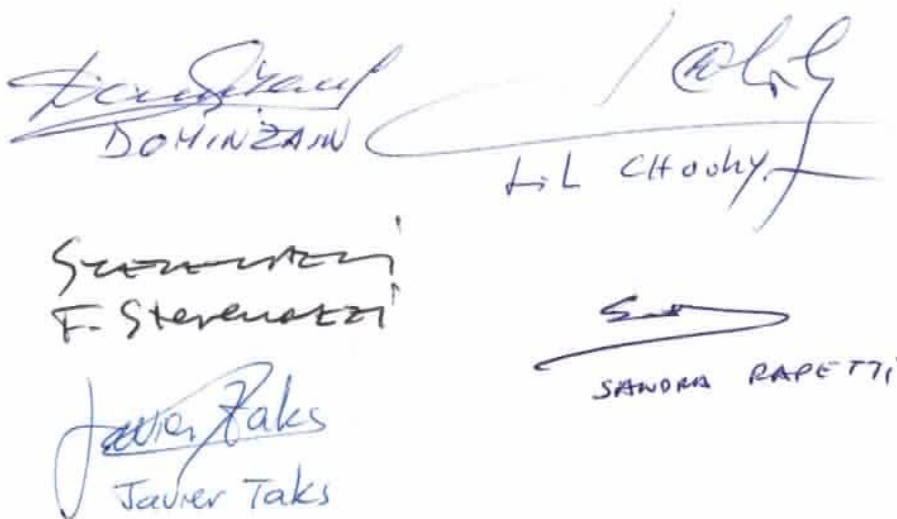 DOMINZAIN
Lil CHOUHY
F. Stevenazzi
SANDRA RAPETTI
Javier Taks
Javier Taks